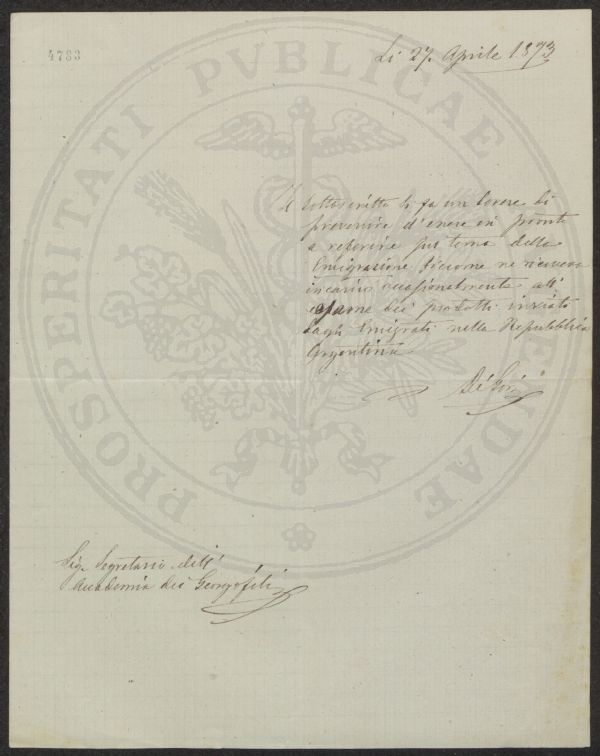 4783
Li 27. Aprile 1873
PROSPERITATI PVBLICAE
Il sottoscritto si fa un dovere di
prevenire d'essere in pronto
a referire sul tema della
Emigrazione siccome ne riceveva
incarico occasionalmente all'
esame dei prodotti inviati
dagli Emigrati nella Repubblica
Argentina
Sig. Segretario dell'
Accademia dei Georgofili